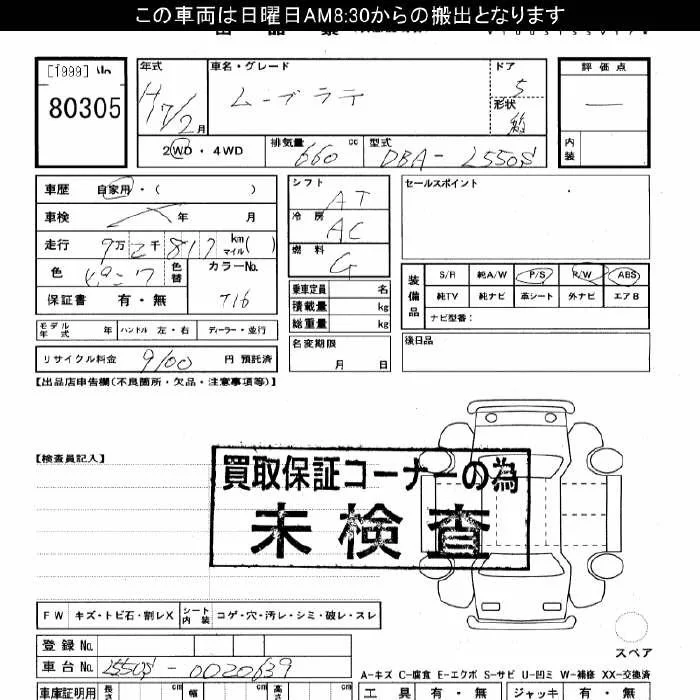 この車両は日曜日AM8:30からの搬出となります
[1999]
80305
年式
車名・グレード
ドア
評価点
H17/2月
ムーブラテ
5
形状
2WD・4WD
排気量
660
cc
型式
DBA-L550S
内装
車歴
自家用・( )
シフト
AT
セールスポイント
車検
年 月
冷房
AC
走行
9万2千817
km
マイル( )
燃料
G
色
ピンク
色替
カラーNo.
T16
保証書
有・無
装備品
S/R
純A/W
P/S
R/W
ABS
純TV
純ナビ
革シート
外ナビ
エアB
ナビ型番:
乗車定員
名
積載量
kg
総重量
kg
モデル年式
年
ハンドル
左・右
ディーラー・並行
名変期限
月 日
後日品
リサイクル料金
9100
円 預託済
【出品店申告欄(不良箇所・欠品・注意事項等)】
【検査員記入】
買取保証コーナーの為
未検査
FW
キズ・トビ石・割レX
シート内装
コゲ・穴・汚レ・シミ・破レ・スレ
スペア
登録No.
車台No.
L550S-0020639
A-キズ C-腐食 E-エクボ S-サビ U-凹ミ W-補修 XX-交換済
車庫証明用
長さ
cm
幅
cm
高さ
cm
工具
有・無
ジャッキ
有・無